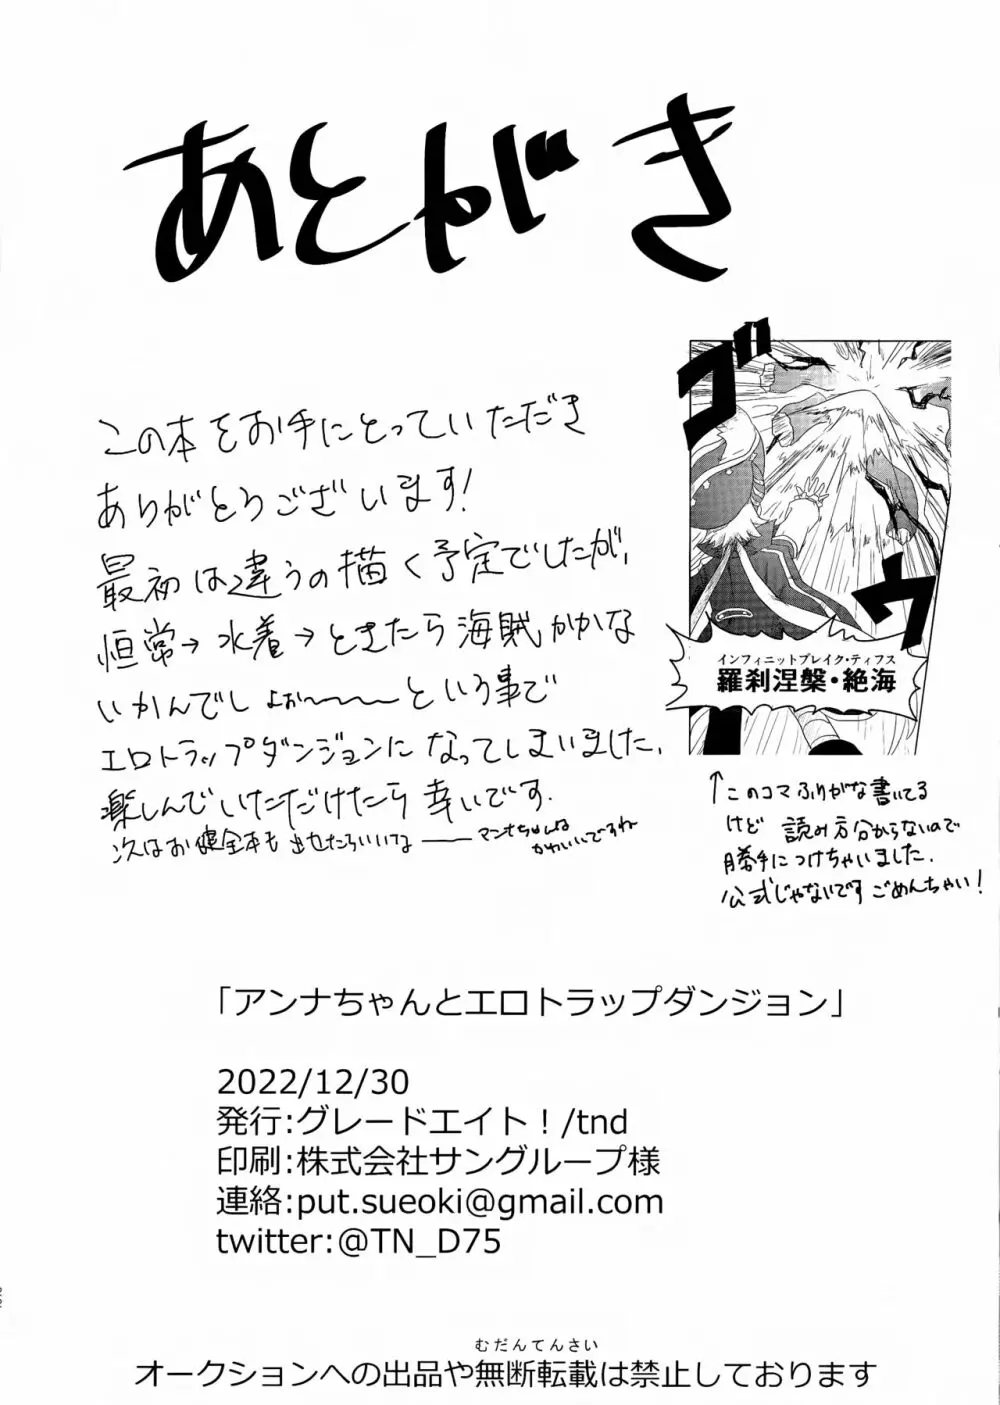 あとがき
この本をお手にとっていただき
ありがとうございます!
最初は違うの描く予定でしたが、
恒常→水着→ときたら海賊かかな
いかんでしょぉ〜〜〜という事で
エロトラップダンジョンになってしまいました、
楽しんでいただけたら幸いです.
次はお健全本も出せたらいいな――マンナちゃんは
かわいいですね
ズゴ
ヴ
インフィニットブレイク・ティフス
羅刹涅槃・絶海
↑このコマふりがな書いてる
けど 読み方分からないので
勝手につけちゃいました.
公式じゃないです ごめんちゃい!
「アンナちゃんとエロトラップダンジョン」
2022/12/30
発行:グレードエイト！/tnd
印刷:株式会社サングループ様
連絡:put.sueoki@gmail.com
twitter:@TN_D75
むだんてんさい
オークションへの出品や無断転載は禁止しております